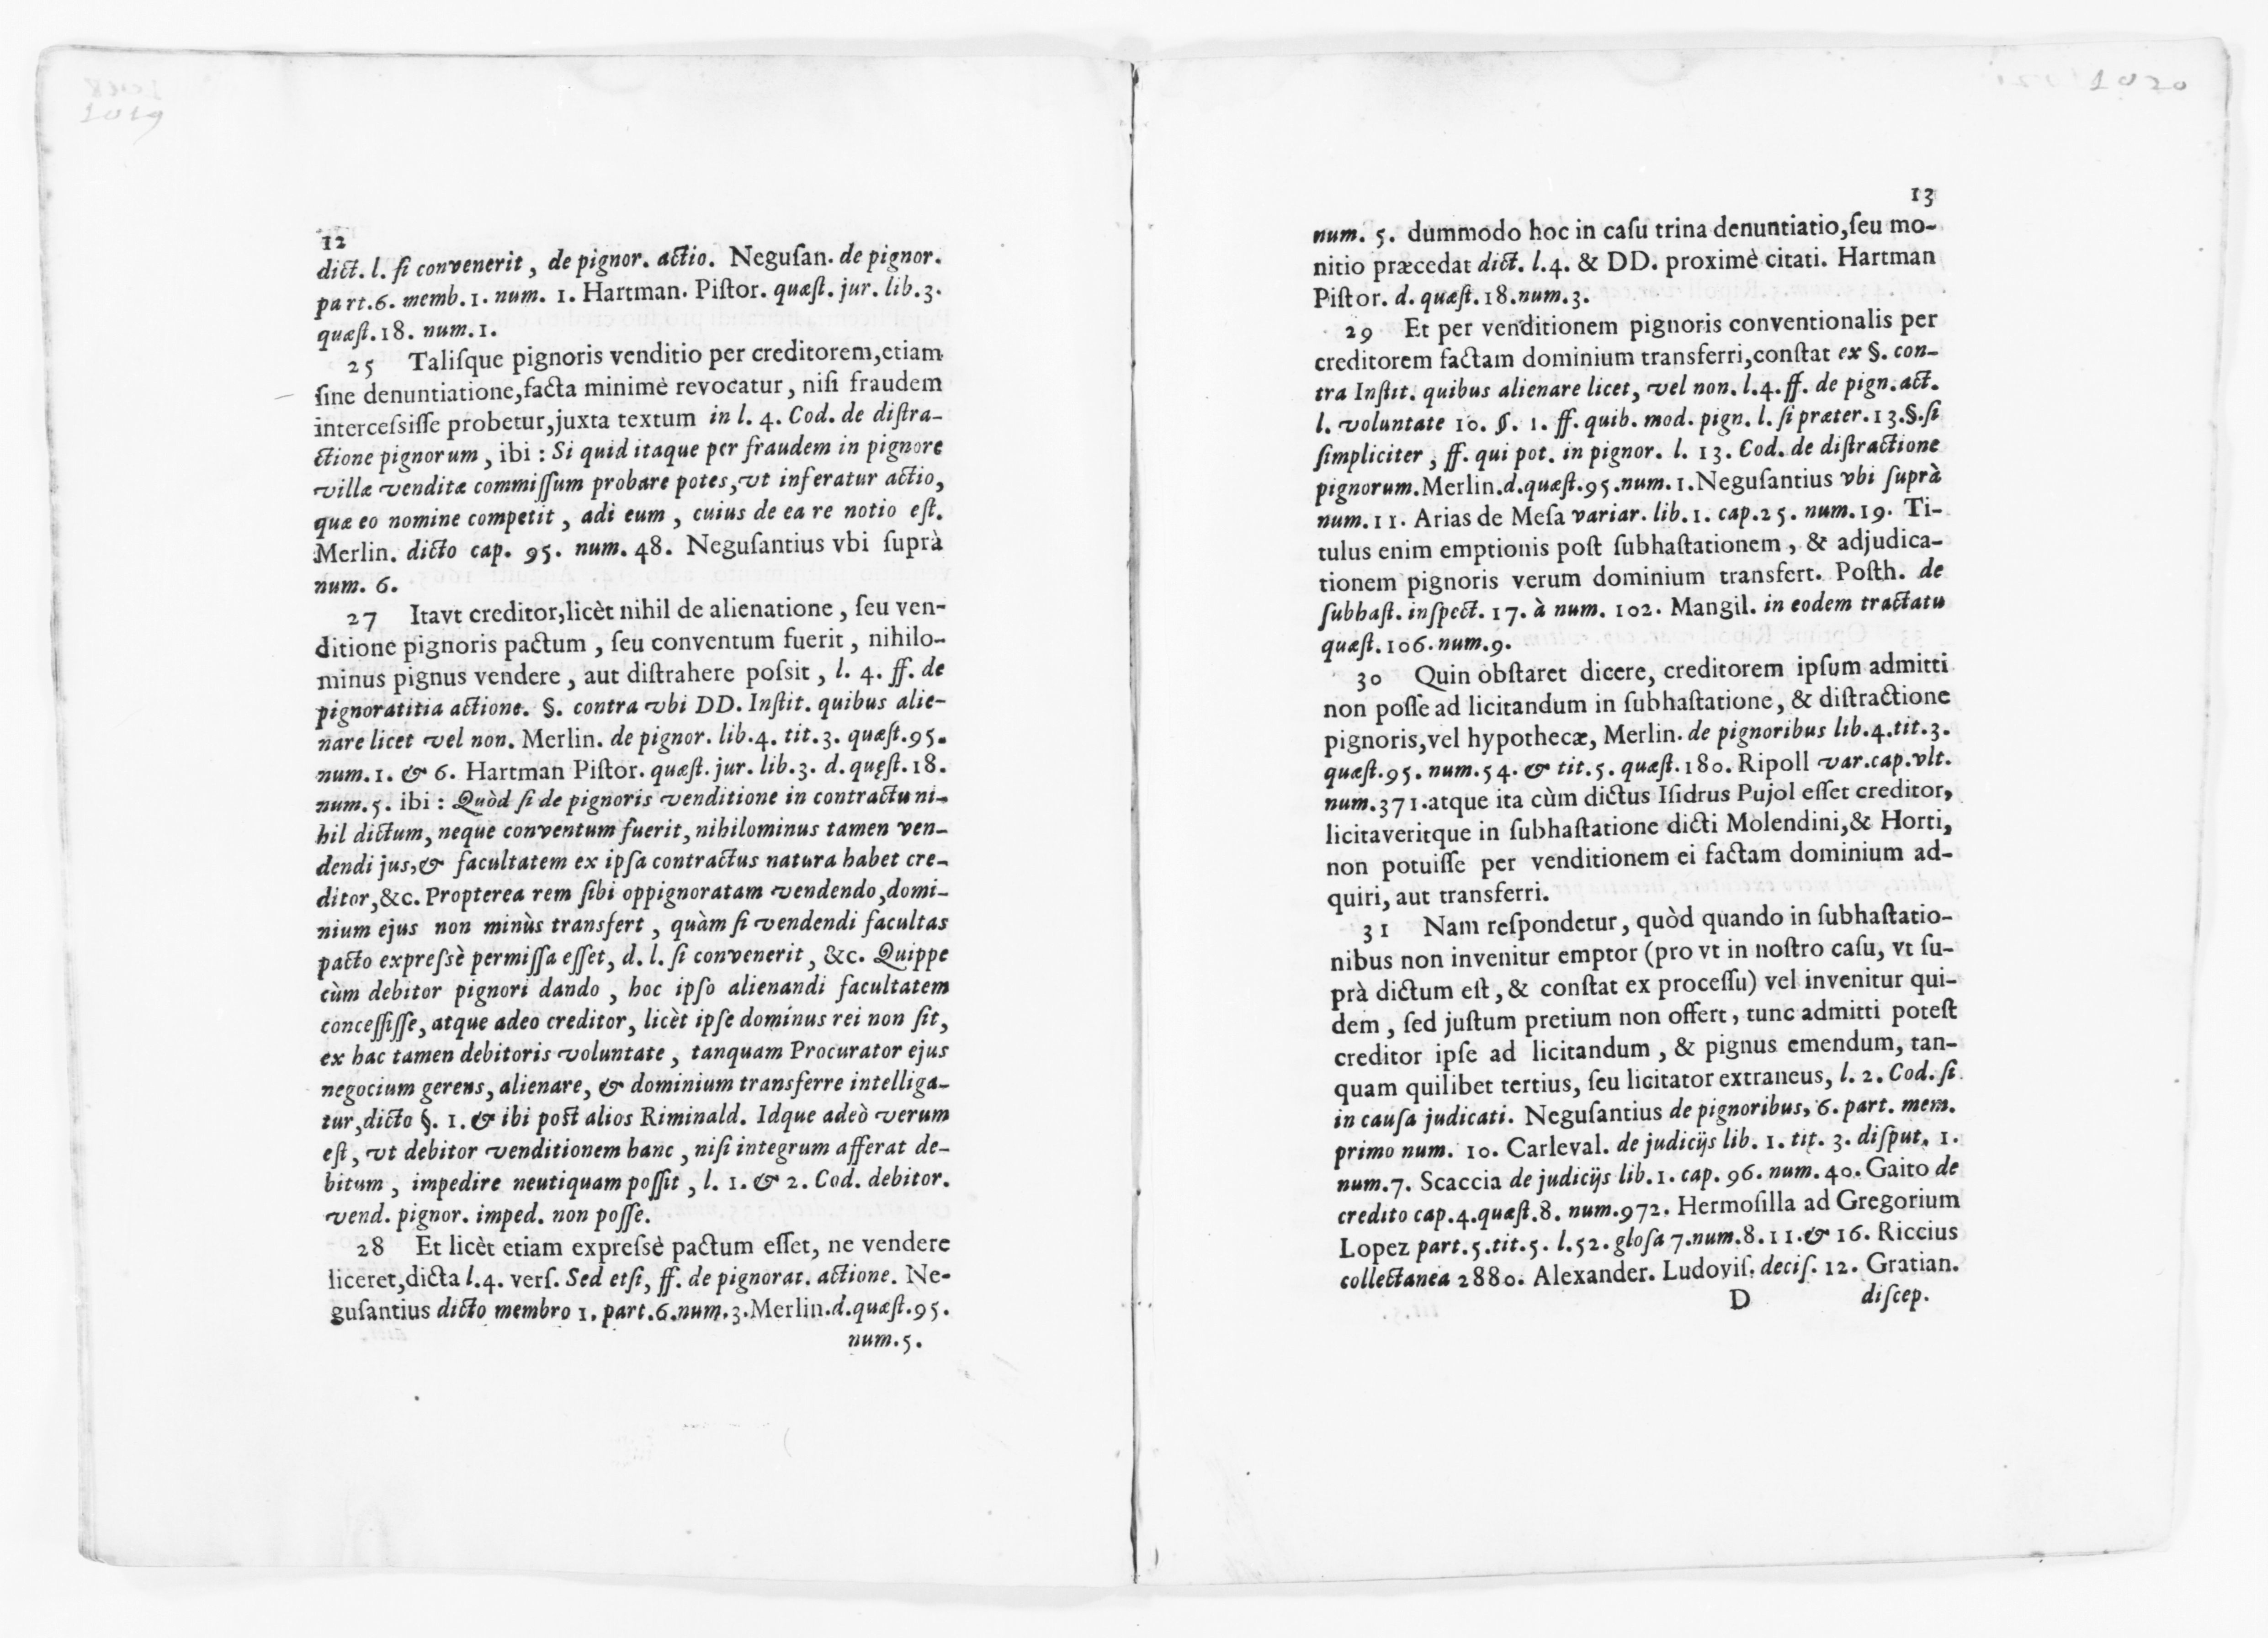 1019
12
dict. l. ſi convenerit, de pignor. actio. Neguſan. de pignor.
part.6. memb.1. num. 1. Hartman. Piſtor. quæſt. jur. lib.3.
quæſt.18. num.1.
25 Taliſque pignoris venditio per creditorem,etiam
ſine denuntiatione,facta minimè revocatur, niſi fraudem
interceſsiſſe probetur,juxta textum in l. 4. Cod. de diſtra-
ctione pignorum, ibi: Si quid itaque per fraudem in pignore
villæ venditæ commiſſum probare potes,vt inferatur actio,
quæ eo nomine competit, adi eum, cuius de ea re notio eſt.
Merlin. dicto cap. 95. num. 48. Neguſantius vbi ſuprà
num. 6.
27 Itavt creditor,licèt nihil de alienatione, ſeu ven-
ditione pignoris pactum, ſeu conventum fuerit, nihilo-
minus pignus vendere, aut diſtrahere poſsit, l. 4. ff. de
pignoratitia actione. §. contra vbi DD. Inſtit. quibus alie-
nare licet vel non. Merlin. de pignor. lib.4. tit.3. quæſt.95.
num.1. & 6. Hartman Piſtor. quæſt. jur. lib.3. d. quęſt.18.
num.5. ibi: Quòd ſi de pignoris venditione in contractu ni-
hil dictum, neque conventum fuerit, nihilominus tamen ven-
dendi jus,& facultatem ex ipſa contractus natura habet cre-
ditor,&c. Propterea rem ſibi oppignoratam vendendo,domi-
nium ejus non minùs transfert, quàm ſi vendendi facultas
pacto expreſsè permiſſa eſſet, d. l. ſi convenerit, &c. Quippe
cùm debitor pignori dando, hoc ipſo alienandi facultatem
conceſſiſſe, atque adeo creditor, licèt ipſe dominus rei non ſit,
ex hac tamen debitoris voluntate, tanquam Procurator ejus
negocium gerens, alienare, & dominium transferre intelliga-
tur,dicto §. 1. & ibi poſt alios Riminald. Idque adeò verum
eſt, vt debitor venditionem hanc, niſi integrum afferat de-
bitum, impedire neutiquam poſſit, l. 1. & 2. Cod. debitor.
vend. pignor. imped. non poſſe.
28 Et licèt etiam expreſsè pactum eſſet, ne vendere
liceret,dicta l.4. verſ. Sed etſi, ff. de pignorat. actione. Ne-
guſantius dicto membro 1. part.6.num.3.Merlin.d.quæſt.95.
num.5.
1020
13
num. 5. dummodo hoc in caſu trina denuntiatio,ſeu mo-
nitio præcedat dict. l.4. & DD. proximè citati. Hartman
Piſtor. d. quæſt.18.num.3.
29 Et per venditionem pignoris conventionalis per
creditorem factam dominium transferri,conſtat ex §. con-
tra Inſtit. quibus alienare licet, vel non. l.4. ff. de pign.act.
l. voluntate 10. §. 1. ff. quib. mod. pign. l. ſi præter.13.§.ſi
ſimpliciter, ff. qui pot. in pignor. l. 13. Cod. de diſtractione
pignorum.Merlin.d.quæſt.95.num.1.Neguſantius vbi ſuprà
num.11. Arias de Meſa variar. lib.1. cap.25. num.19. Ti-
tulus enim emptionis poſt ſubhaſtationem, & adjudica-
tionem pignoris verum dominium transfert. Poſth. de
ſubhaſt. inſpect. 17. à num. 102. Mangil. in eodem tractatu
quæſt.106.num.9.
30 Quin obſtaret dicere, creditorem ipſum admitti
non poſſe ad licitandum in ſubhaſtatione, & diſtractione
pignoris,vel hypothecæ, Merlin. de pignoribus lib.4.tit.3.
quæſt.95. num.54. & tit.5. quæſt.180. Ripoll var.cap.vlt.
num.371.atque ita cùm dictus Iſidrus Pujol eſſet creditor,
licitaveritque in ſubhaſtatione dicti Molendini,& Horti,
non potuiſſe per venditionem ei factam dominium ad-
quiri, aut transferri.
31 Nam reſpondetur, quòd quando in ſubhaſtatio-
nibus non invenitur emptor (pro vt in noſtro caſu, vt ſu-
prà dictum eſt, & conſtat ex proceſſu) vel invenitur qui-
dem, ſed juſtum pretium non offert, tunc admitti poteſt
creditor ipſe ad licitandum, & pignus emendum, tan-
quam quilibet tertius, ſeu licitator extraneus, l. 2. Cod. ſi
in cauſa judicati. Neguſantius de pignoribus, 6. part. mem.
primo num. 10. Carleval. de judicijs lib. 1. tit. 3. diſput. 1.
num.7. Scaccia de judicijs lib.1. cap. 96. num.40. Gaito de
credito cap.4.quæſt.8. num.972. Hermoſilla ad Gregorium
Lopez part.5.tit.5. l.52. gloſa 7.num.8.11.& 16. Riccius
collectanea 2880. Alexander. Ludoviſ. deciſ. 12. Gratian.
D diſcep.